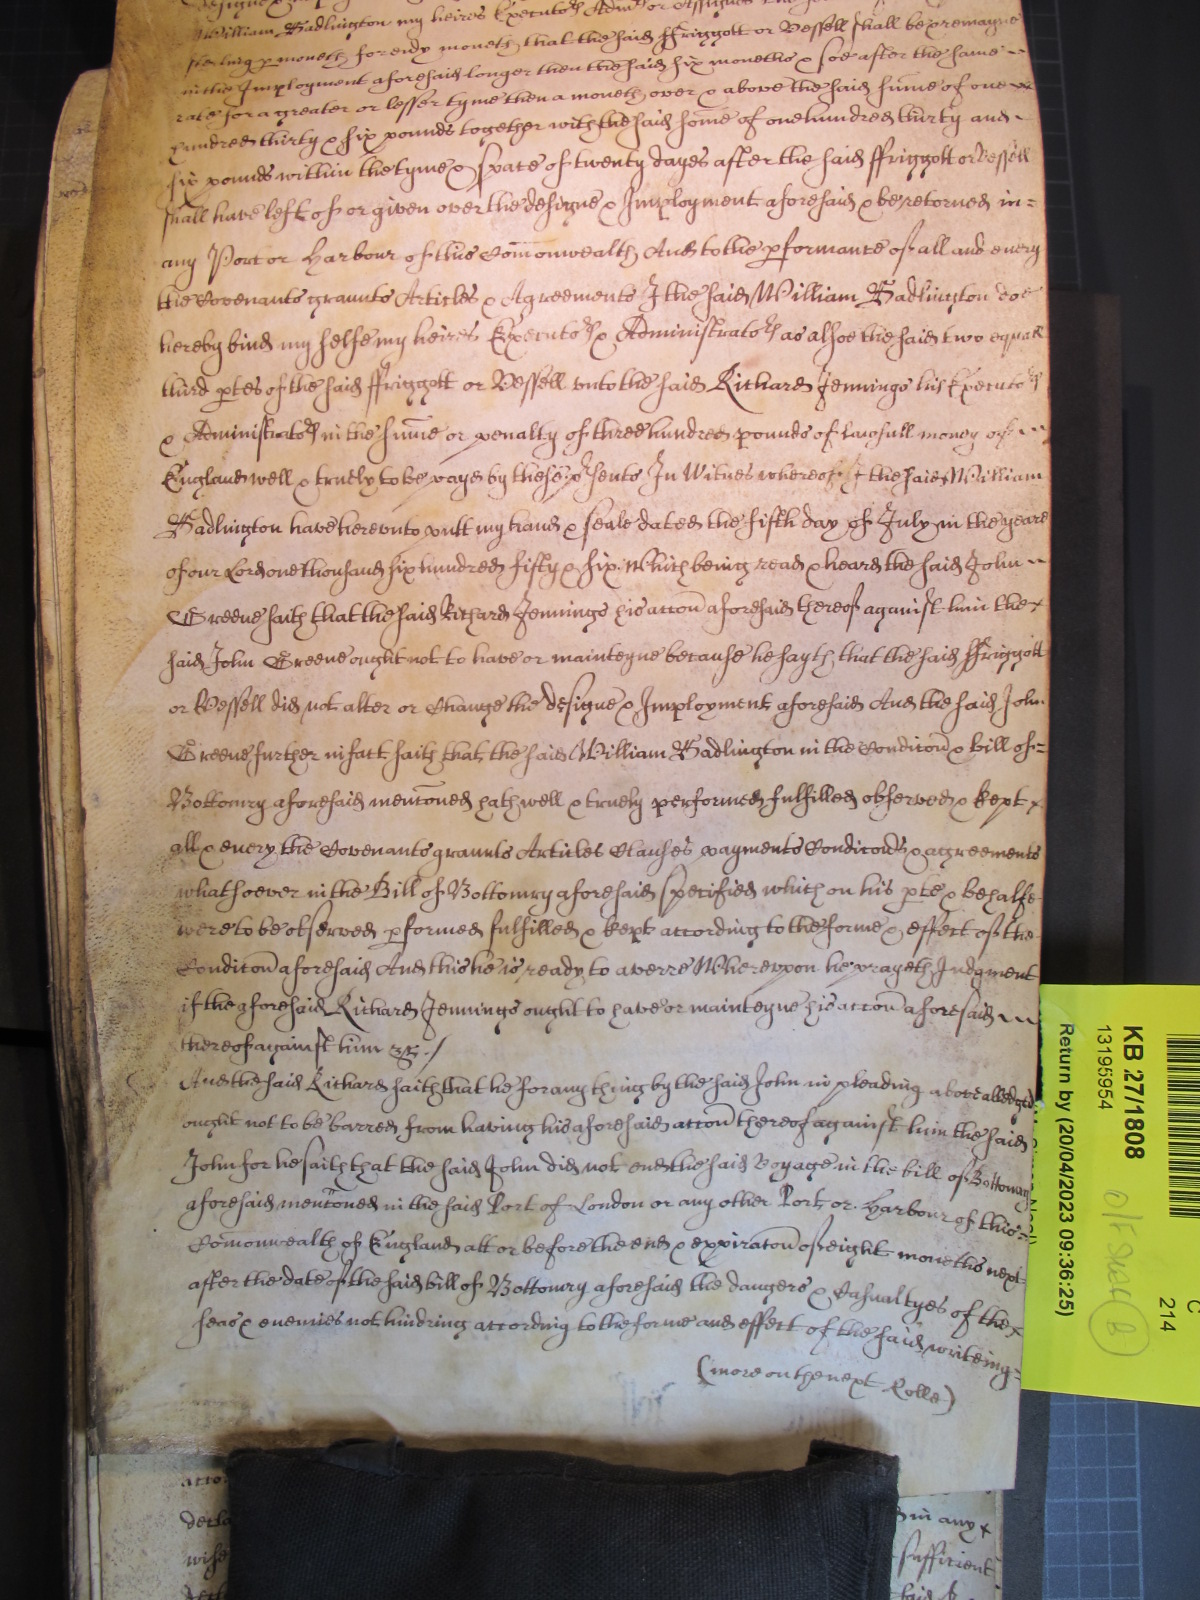 William Badlington my heires Executors Adm or Assignes
sterling p moneth for euery moneth that the said ffriggott or Vessell shall be & remayne
in the Imployment aforesaid longer then the said six moneths & soe after the same
rate for a greater or lesser tyme then a moneth over & above the said sume of one
hundred thirty & six pounds together with the said some of one hundred thirty and
six pounds within the tyme & space of twenty dayes after the said ffriggott or Vessell
shall have left of or given over the designe & Imployment aforesaid & be returned in=
any Port or Harbour of this Comonwealth And to the pformance of all and euery
the Covenants graunts Articles & Agreements I the said William Badlington doe
hereby bind my selfe my heires Executors & Administrators as alsoe the said two equall
third ptes of the said ffriggott or Vessell vnto the said Richard Jennings his Executors
& Administrators in the sume or penalty of three hundred pounds of lawfull money of
England well & truely to be payd by these psents In Witnes whereof I the said William
Badlington have herevnto putt my hand & seale dated the fifth day of July in the yeare
of our Lord one thousand six hundred fifty & six. Which being read & heard the said John
Greene saith that the said Richard Jennings his accon aforesaid thereof against him the
said John Greene ought not to have or mainteyne because he sayth that the said ffriggott
or Vessell did not alter or Change the designe & Imployment aforesaid And the said John
Greene further in fact saith that the said William Badlington in the Condicon & bill of=
Bottomry aforesaid menconed hath well & truely performed fulfilled observed & kept
all & euery the Covenants graunts Articles Clauses payments Condicons & agreements
whatsoever in the Bill of Bottomry aforesaid specified which on his pte & behalfe
were to be observed pformed fulfilled & kept according to the forme & effect of the
Condicon aforesaid And this he is ready to averre Wherevpon he prayeth Judgment
if the aforesaid Richard Jennings ought to have or mainteyne his accon aforesaid
thereof against him &c ./
And the said Richard saith that he for any thing by the said John in pleading above alledged
ought not to be barred from having his aforesaid accon thereof against him the said
John for he saith that the said John did not end the said Voyage in the bill of Bottomry
aforesaid menconed in the said Port of London or any other Port or Harbour of this=
Comonwealth of England att or before the end & expiracon of eight moneths next=
after the date of the said bill of Bottomry aforesaid the dangers & Casualtyes of the
seas & enemies not hindring according to the forme and effect of the said writeing=
(more on the next Rolle)
KB 27/1808
13195954
Return by (20/04/2023 09:36:25)
C
214
in any
sufficient